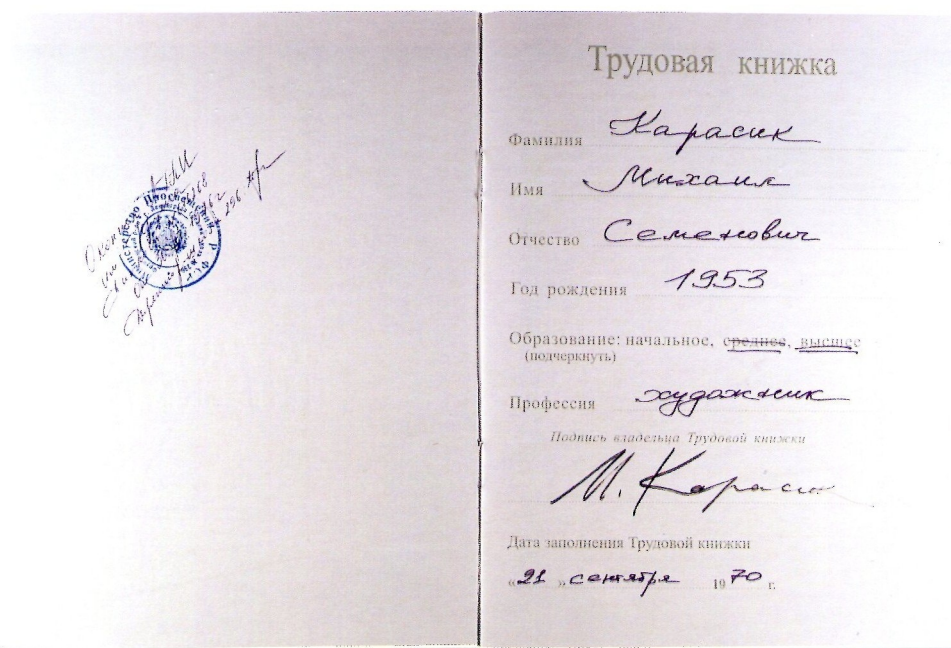 Министерство Просвещения
296
Трудовая книжка
Фамилия Карасик
Имя Михаил
Отчество Семенович
Год рождения 1953
Образование: начальное, среднее, высшее
(подчеркнуть)
Профессия художник
Подпись владельца Трудовой книжки
М. Карасик
Дата заполнения Трудовой книжки
«21» сентября 1970 г.